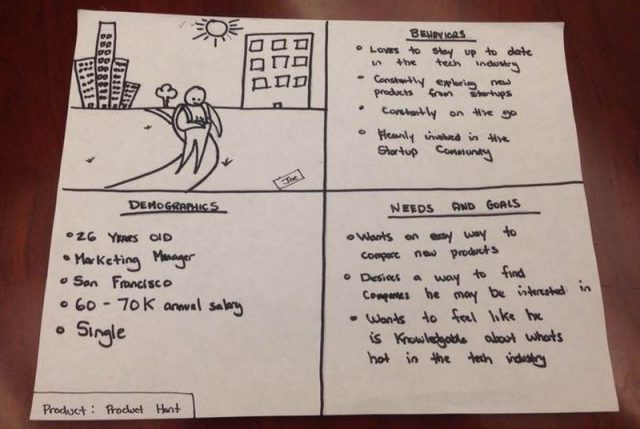 Joe
BEHAVIORS
• Loves to stay up to date
in the tech industry
• Constantly exploring new
products from startups
• Constantly on the go
• Heavily involved in the
Startup Community
DEMOGRAPHICS
• 26 YEARS OLD
• Marketing Manager
• San Francisco
• 60 - 70K annual salary
• Single
Product: Product Hunt
NEEDS AND GOALS
• Wants an easy way to
compare new products
• Desires a way to find
Companies he may be interested in
• Wants to feel like he
is Knowledgable about whats
hot in the tech industry